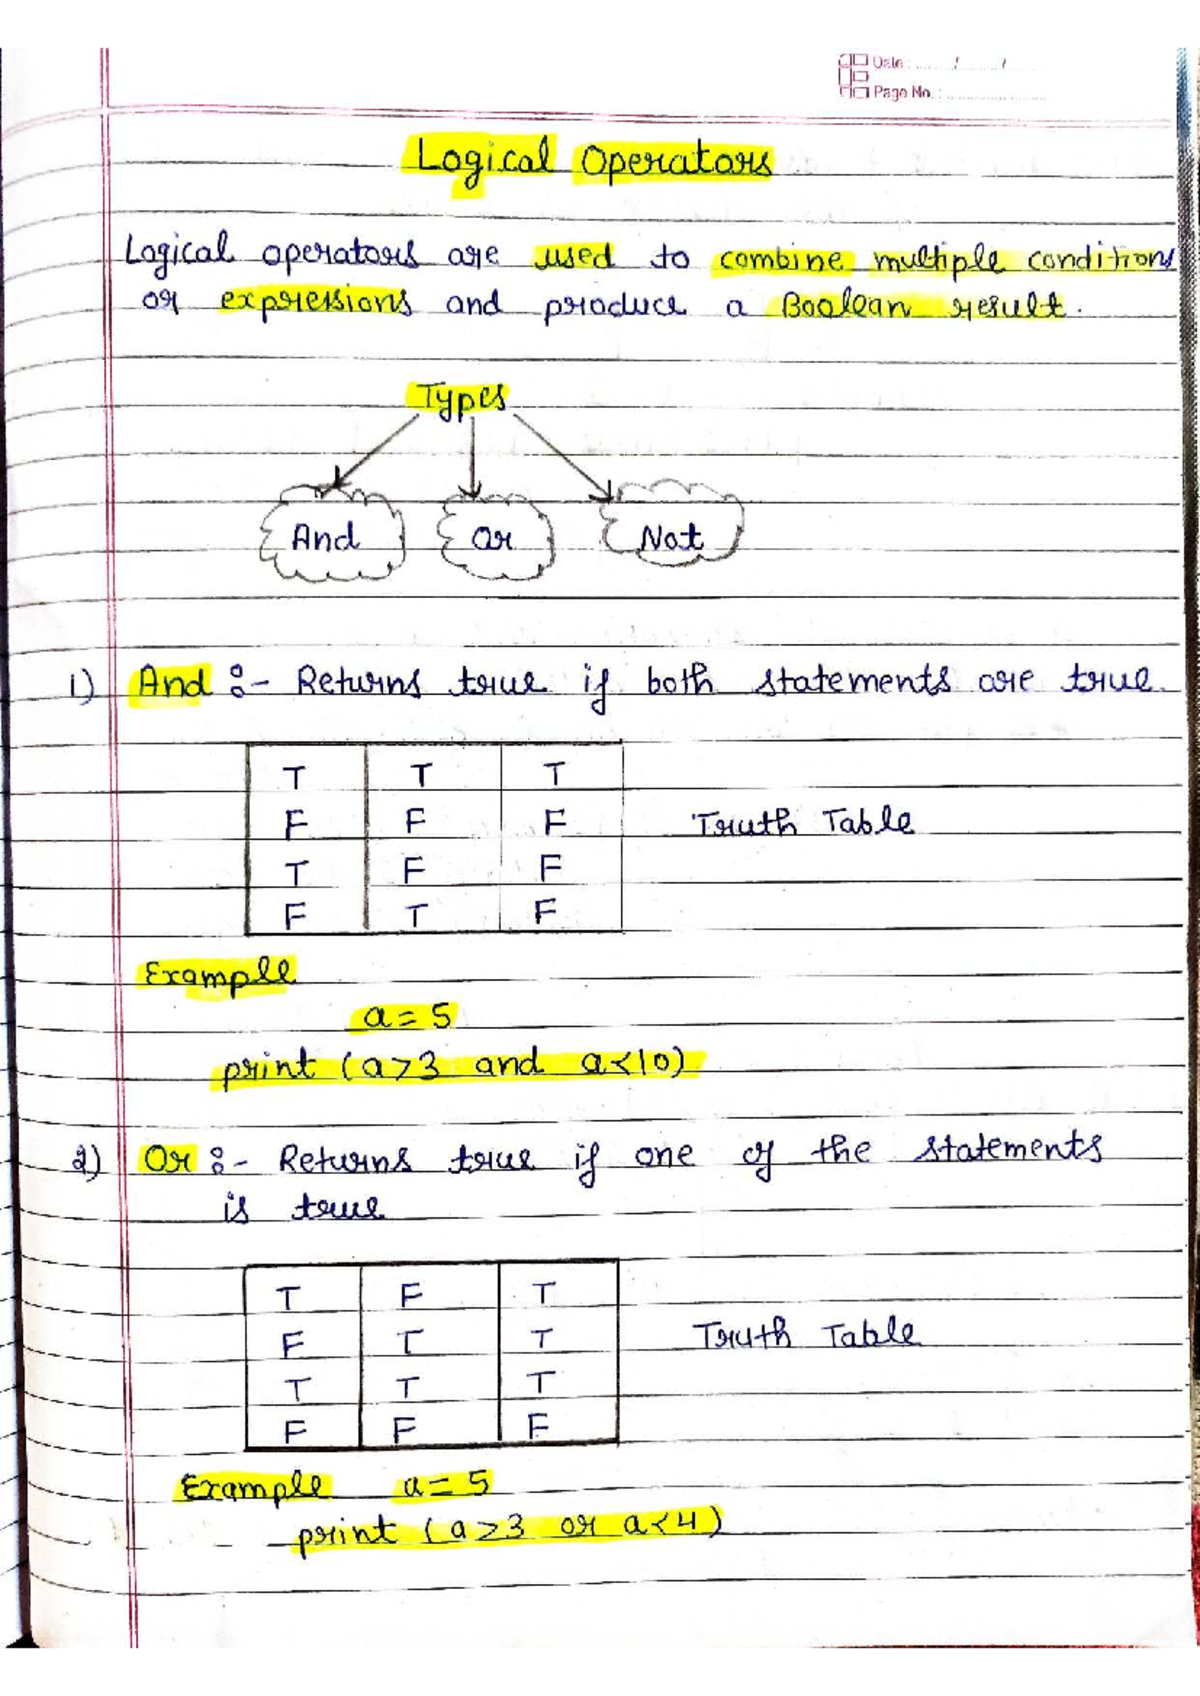 Date : ......../......../........
Page No. : ........................
Logical Operators
Logical operators are used to combine multiple conditions
or expressions and produce a Boolean result.
Types
And Or Not
1) And :- Returns true if both statements are true.
T T T
F F F Truth Table
T F F
F T F
Example
a = 5
print (a>3 and a<10)
2) Or :- Returns true if one of the statements
is true
T F T
F T T Truth Table
T T T
F F F
Example a = 5
print (a>3 or a<4)